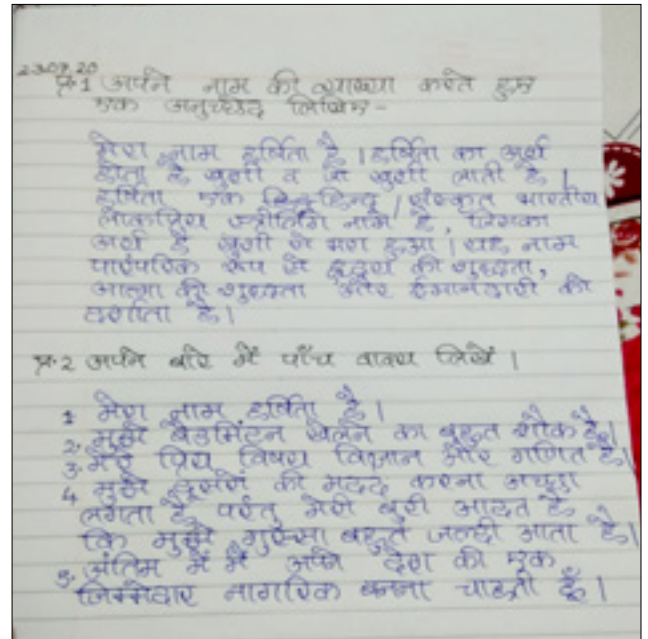 23.07.20
प्र.1 अपने नाम की व्याख्या करते हुए
एक अनुच्छेद लिखिए-
मेरा नाम हर्षिता है । हर्षिता का अर्थ
होता है खुशी व जो खुशी लाती है ।
हर्षिता एक हिन्दू / संस्कृत भारतीय
लोकप्रिय स्त्रीलिंग नाम है, जिसका
अर्थ है खुशी से भरा हुआ । यह नाम
पारंपरिक रूप से हृदय की शुद्धता,
आत्मा की शुद्धता और ईमानदारी को
दर्शाता है ।
प्र.2 अपने बारे में पाँच वाक्य लिखें ।
1 मेरा नाम हर्षिता है ।
2. मुझे बैडमिंटन खेलने का बहुत शौक है ।
3. मेरे प्रिय विषय विज्ञान और गणित है ।
4 मुझे दूसरों की मदद करना अच्छा
लगता है परंतु मेरी बुरी आदत है
कि मुझे गुस्सा बहुत जल्दी आता है ।
5. अंतिम में मैं अपने देश की एक
जिम्मेदार नागरिक बनना चाहती हूँ ।